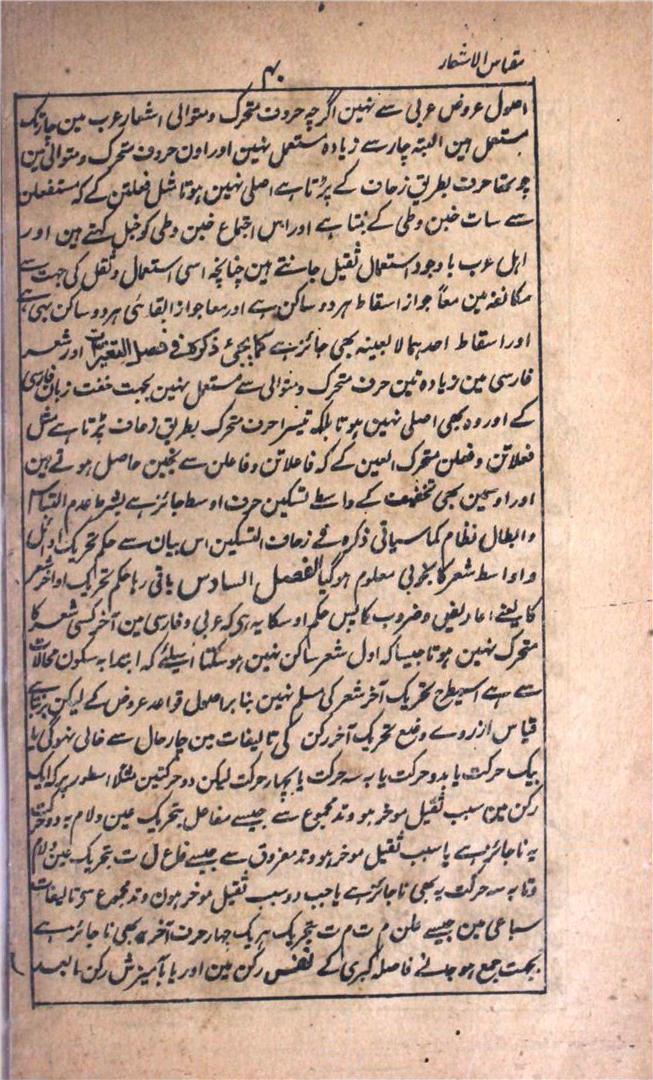 مقیاس الاشعار
۴۰
اصول عروض عربی سے نہین اگرچہ حروف متحرک و متوالی اشعار عرب مین چار تک
مستعمل ہین البتہ چار سے زیادہ مستعمل نہین اور اون حروف متحرک و متوالی مین
چوتھا حرف بطریق زحاف کے پڑتا ہے اصلی نہین ہوتا مثل فعلتن کے کہ مستفعلن
سے سات خبن وطی کے بنتا ہے اور اس اجتماع خبن وطی کو خبل کہتے ہین اور
اہل عرب باوجود استعمال ثقیل جانتے ہین چنانچہ اسی استعمال و ثقل کی جہت سے
مکانفہ مین معاً جواز اسقاط ہر دو ساکن ہے اور معا جواز ابقای ہر دو ساکن بھی ہے
اور اسقاط احدہما لا بعینہ بھی جائز ہے کما یجیٔ ذکرہ فی فصل التغیرات اور شعر
فارسی مین زیادہ تین حرف متحرک و متوالی سے مستعمل نہین بجہت خفت زبان فارسی
کے اور وہ بھی اصلی نہین ہوتا بلکہ تیسرا حرف متحرک بطریق زحاف پڑتا ہے مثل
فعلاتن و فعلن متحرک العین کے کہ فاعلاتن و فاعلن سے بخبن حاصل ہوتے ہین
اور اوسمین بھی تخفیف کے واسطے تسکین حرف اوسط جائز ہے بشرط عدم التباس
و ابطال نظام کما سیاتی ذکرہ فے زحاف التسکین اس بیان سے حکم تحریک اوائل
و اواسط شعر کا بخوبی معلوم ہو گیا الفصل السادس باقی رہا حکم تحریک اواخر شعر
کا یعنے اعاریض و ضروب کا پس حکم اوسکا یہ ہی کہ عربی و فارسی مین آخر کسی شعر کا
متحرک نہین ہوتا جیسا کہ اول شعر ساکن نہین ہو سکتا اسلیے کہ ابتدا بہ سکون محالات
سے ہے اسیطرح تحریک آخر شعر کی مسلم نہین بنا بر اصول قواعد عروض کے لیکن بر بنای
قیاس از روے وضع تحریک آخر رکن کی تالیفات مین چار حال سے خالی نہوگی یا
بیک حرکت یا بدو حرکت یا بہ سہ حرکت یا بچہار حرکت لیکن دو حرکتین مثلاً اسطور پر کہ ایک
رکن مین سبب ثقیل موخر ہو وتد مجموع سے جیسے مفاعل بتحریک عین و لام بہ دو حرکت
یہ ناجائز ہے یا سبب ثقیل موخر ہو وتد مفروق سے جیسے فاع ل ت بتحریک عین و لام
و تا بہ سہ حرکت یہ بھی ناجائز ہے یا جب دو سبب ثقیل موخر ہون وتد مجموع سے تالیفات
سباعی مین جیسے علن م ت م ت بتحریک ہر یک چہار حرف آخر یہ بھی ناجائز ہے
بجہت جمع ہو جانے فاصلہ کبری کے نفس رکن مین اور یا بآمیزش رکن مابعد